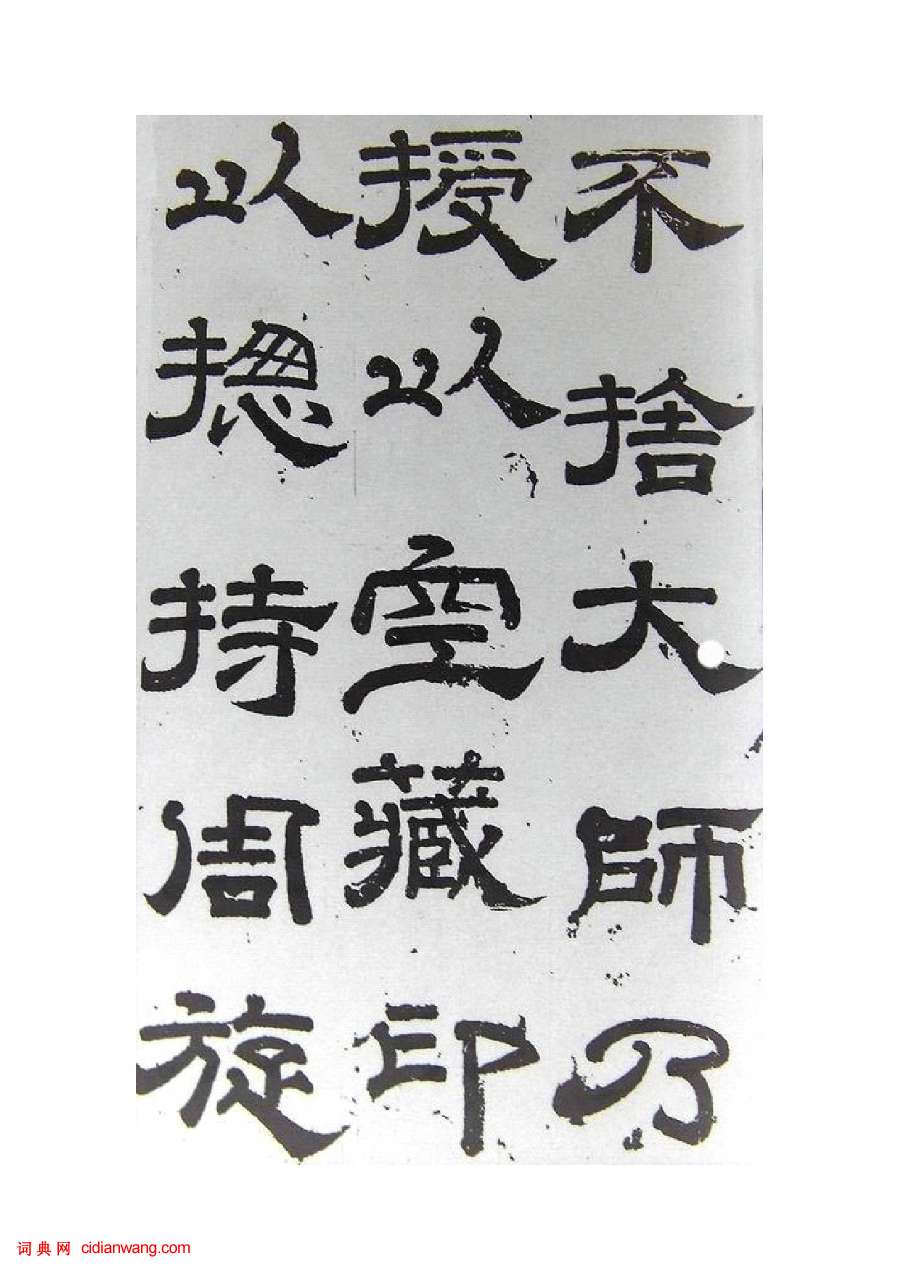 不捨大師乃
授以空藏印
以揔持周旋
词典网 cidianwang.com